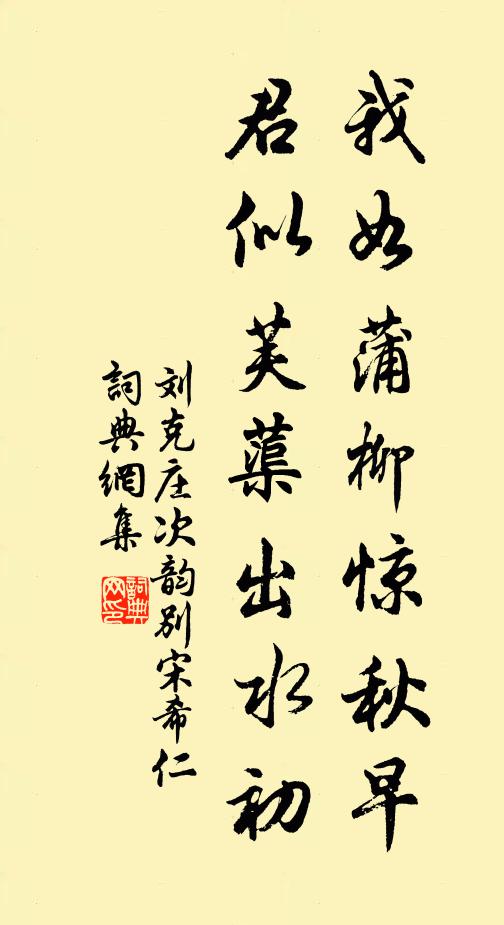 我如蒲柳惊秋早
君似芙蕖出水初
刘克庄次韵别宋希仁
詞典網集
詞典網印